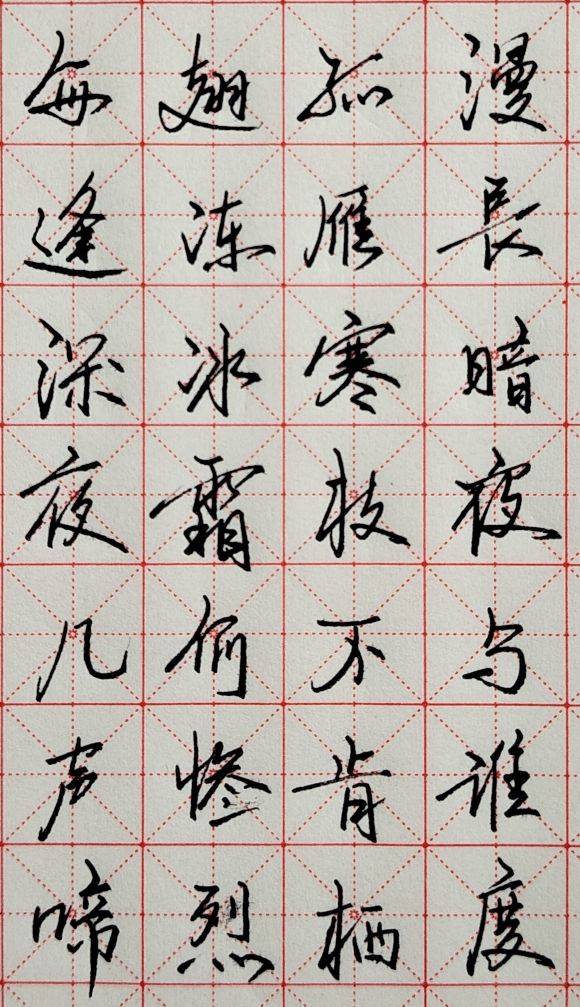 漫長暗夜与谁度
孤雁寒枝不肯栖
翅冻冰霜何惨烈
每逢深夜几声啼